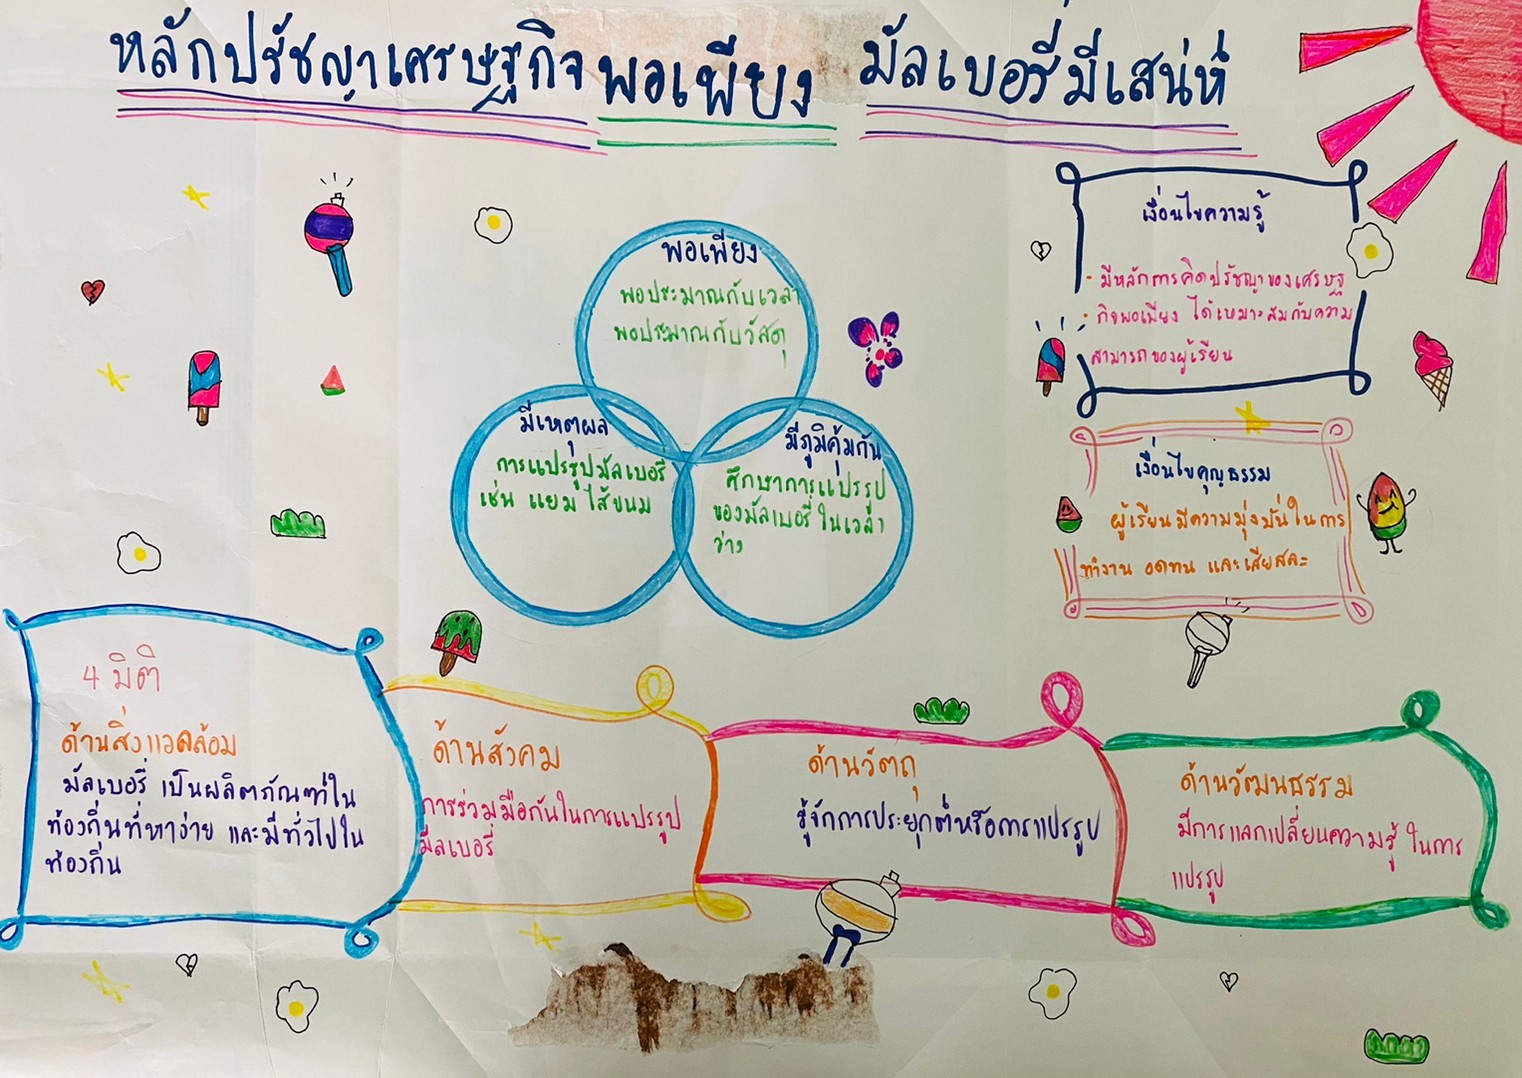 หลักปรัชญาเศรษฐกิจพอเพียง มัลเบอรี่มีเสน่ห์
พอเพียง
พอประมาณกับเวลา
พอประมาณกับวัสดุ
มีเหตุผล
การแปรรูปมัลเบอรี่
เช่น แยม ไส้ขนม
มีภูมิคุ้มกัน
ศึกษาการแปรรูป
ของมัลเบอรี่ในเวลา
ว่าง
เงื่อนไขความรู้
- มีหลักการคิดปรัชญาของเศรษฐ
- กิจพอเพียง ได้เหมาะสมกับความ
สามารถของผู้เรียน
เงื่อนไขคุณธรรม
ผู้เรียนมีความมุ่งมั่นในการ
ทำงาน อดทน และเสียสละ
4 มิติ
ด้านสิ่งแวดล้อม
มัลเบอรี่ เป็นผลิตภัณฑ์ใน
ท้องถิ่นที่หาง่าย และมีทั่วไปใน
ท้องถิ่น
ด้านสังคม
การร่วมมือกันในการแปรรูป
มัลเบอรี่
ด้านวัตถุ
รู้จักการประยุกต์หรือการแปรรูป
ด้านวัฒนธรรม
มีการแลกเปลี่ยนความรู้ ในการ
แปรรูป